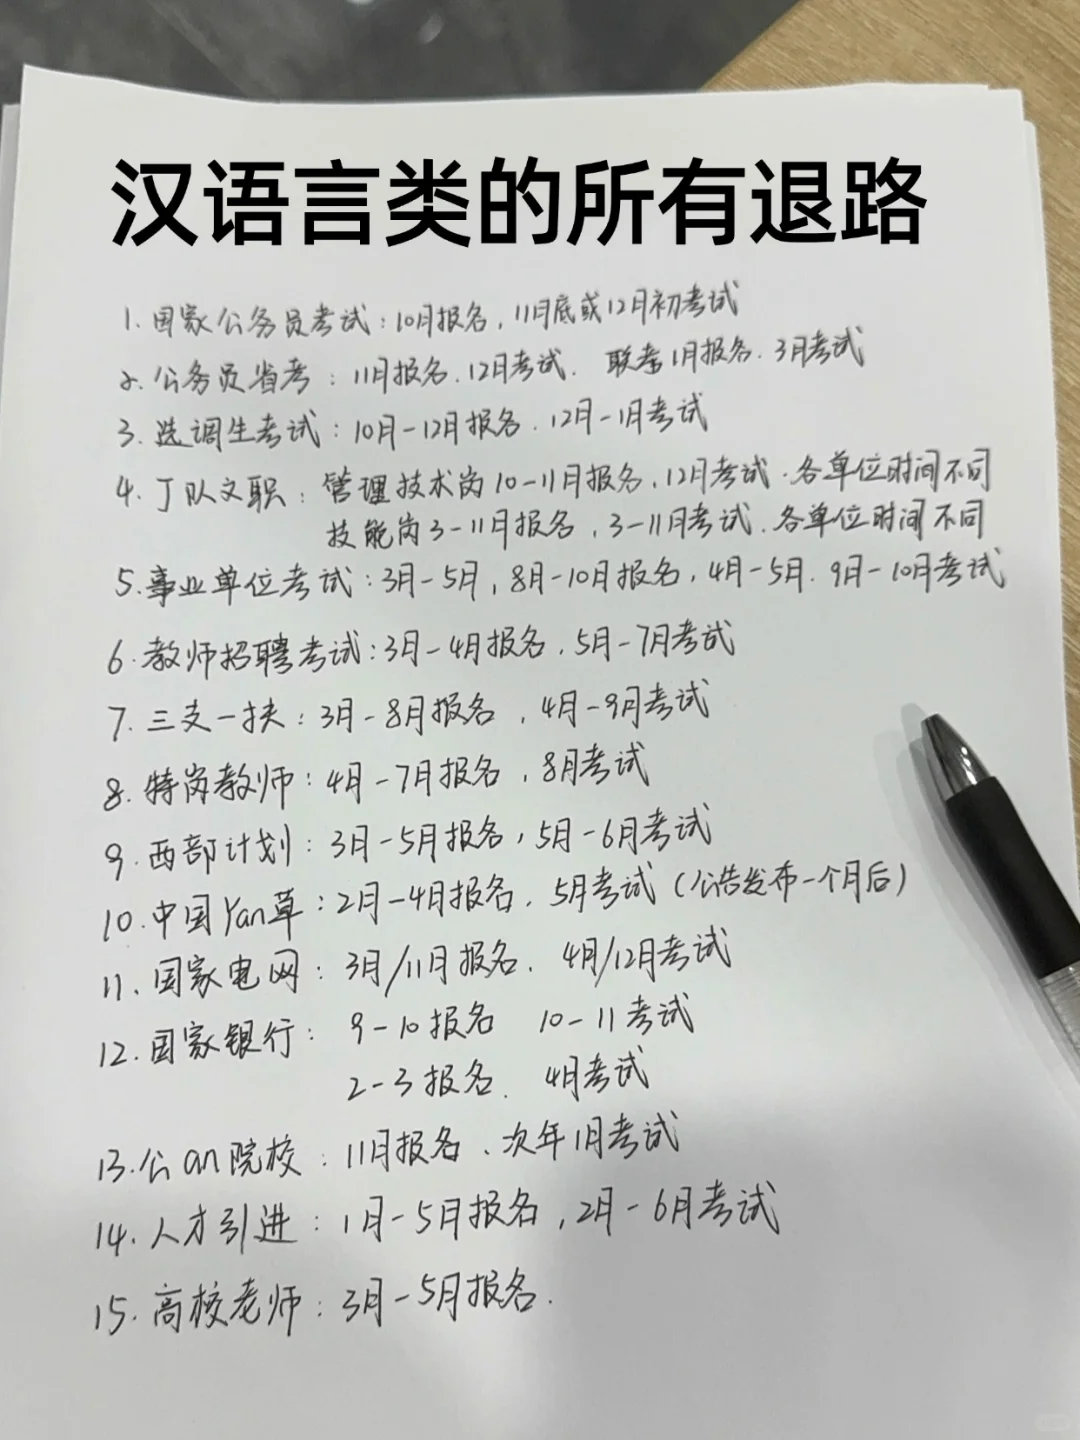 汉语言类的所有退路
1. 国家公务员考试：10月报名，11月底或12月初考试
2. 公务员省考：11月报名、12月考试、联考1月报名、3月考试
3. 选调生考试：10月-12月报名、12月-1月考试
4. 丁队文职：管理技术岗10-11月报名、12月考试.各单位时间不同
技能岗3-11月报名，3-11月考试.各单位时间不同
5.事业单位考试：3月-5月，8月-10月报名，4月-5月、9月-10月考试
6.教师招聘考试：3月-4月报名，5月-7月考试
7. 三支一扶：3月-8月报名，4月-9月考试
8. 特岗教师：4月-7月报名，8月考试
9. 西部计划：3月-5月报名，5月-6月考试
10.中国Yan草：2月-4月报名、5月考试（公告发布一个月后）
11、国家电网：3月/11月报名、4月/12月考试
12.国家银行：9-10报名 10-11考试
2-3报名、4月考试
13.公an院校：11月报名、次年1月考试
14.人才引进：1月-5月报名，2月-6月考试
15. 高校老师：3月-5月报名.